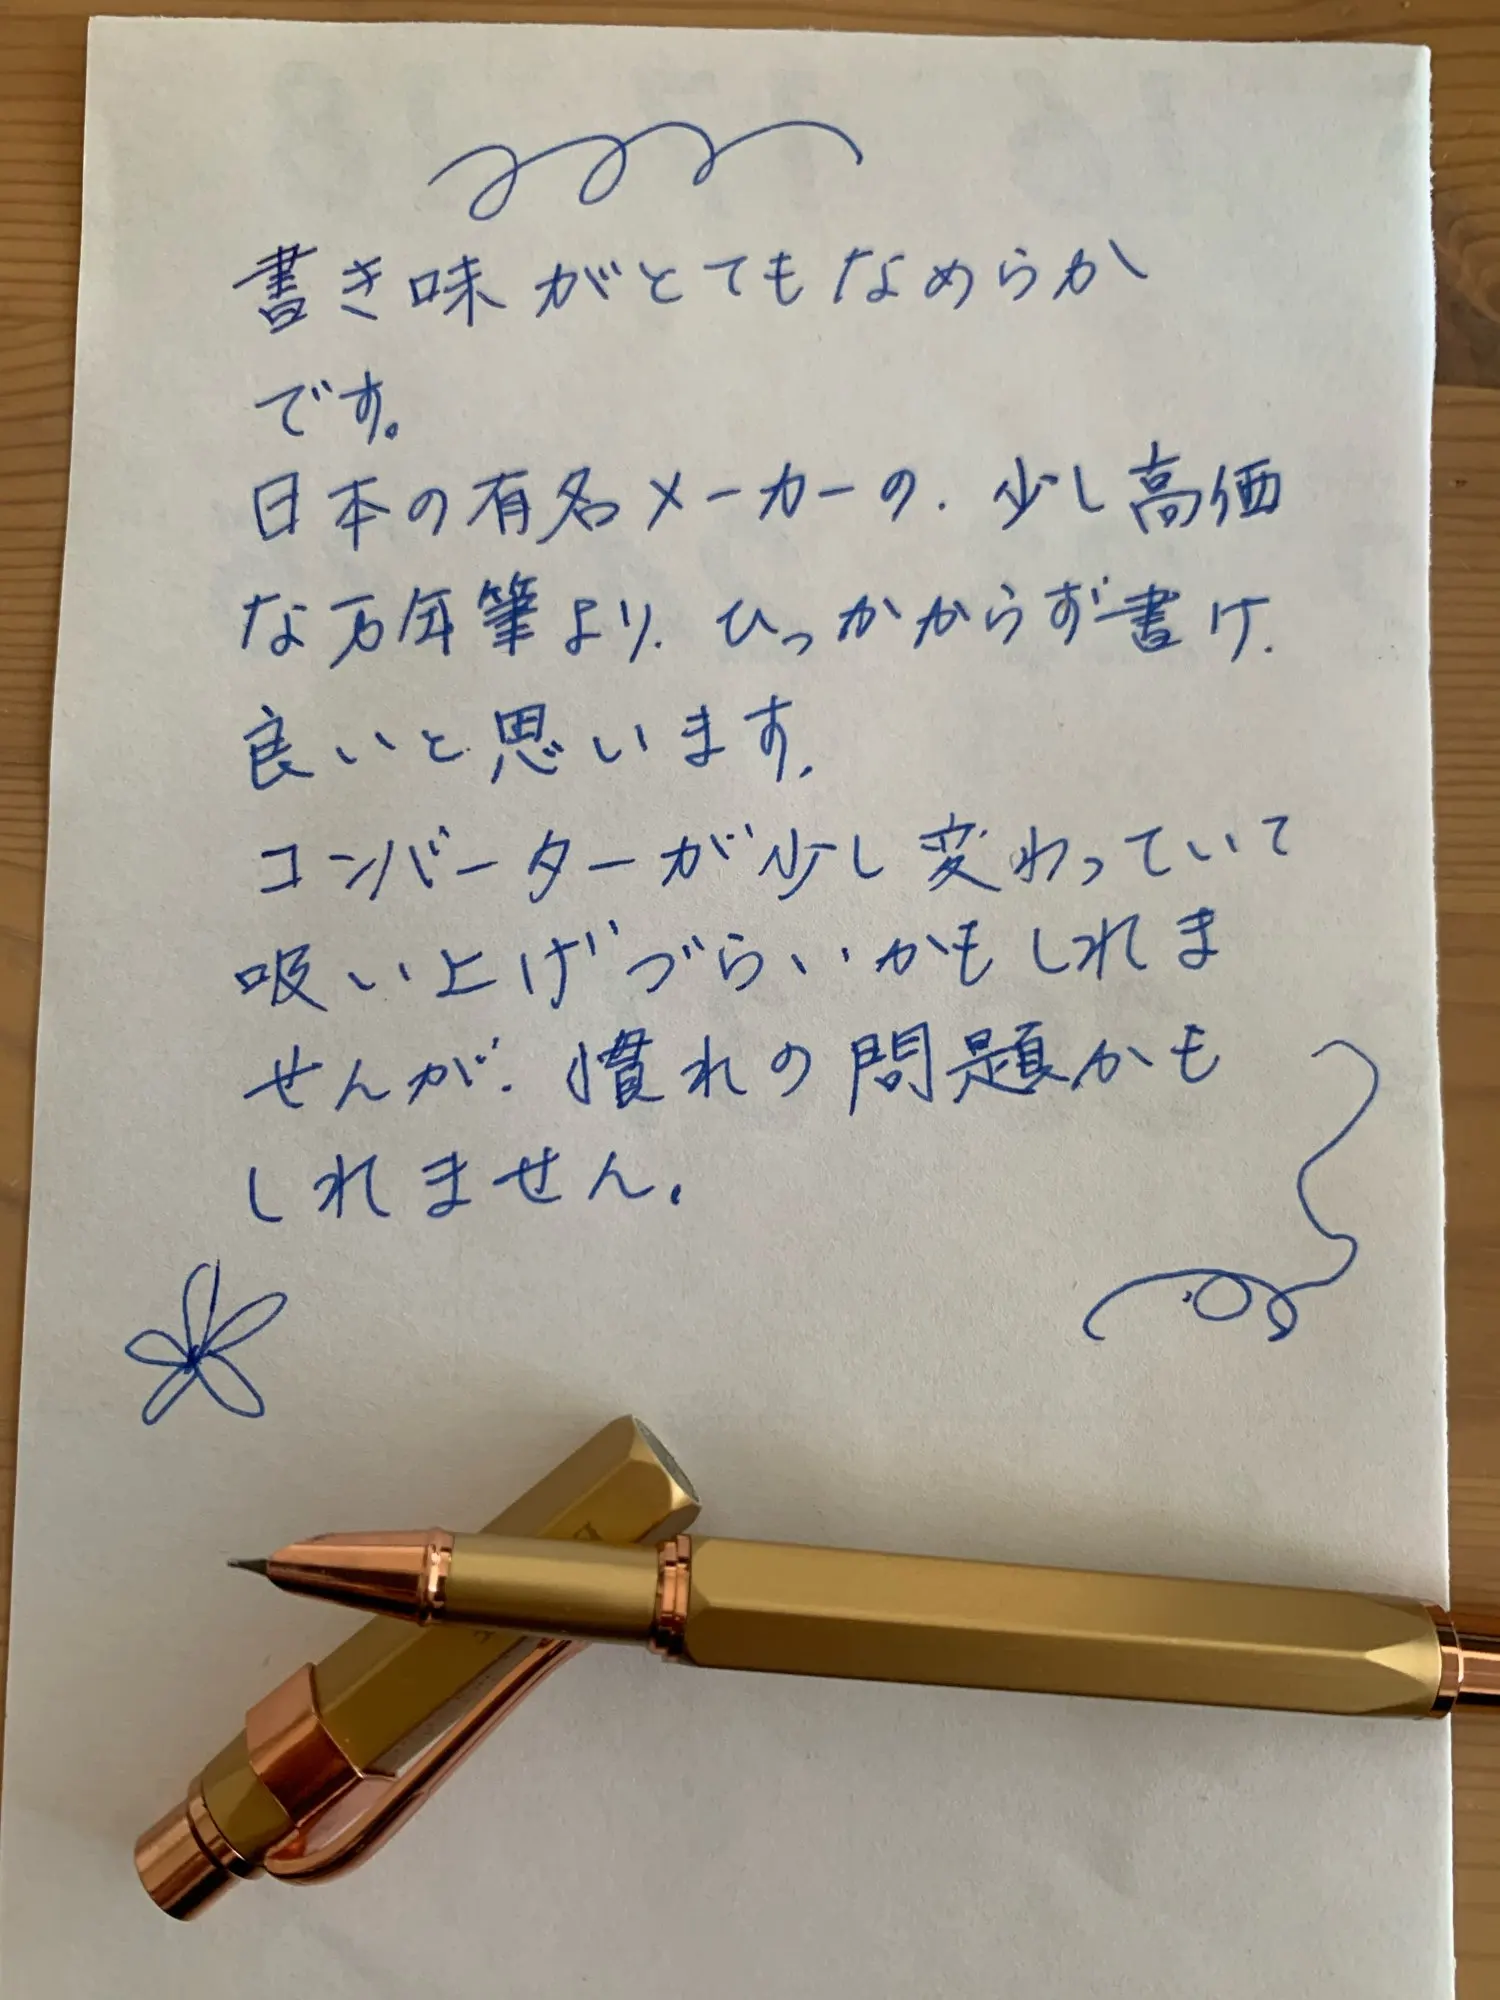 書き味がとてもなめらか
です。
日本の有名メーカーの、少し高価
な万年筆より、ひっかからず書け、
良いと思います。
コンバーターが少し変わっていて
吸い上げづらいかもしれま
せんが、慣れの問題かも
しれません。